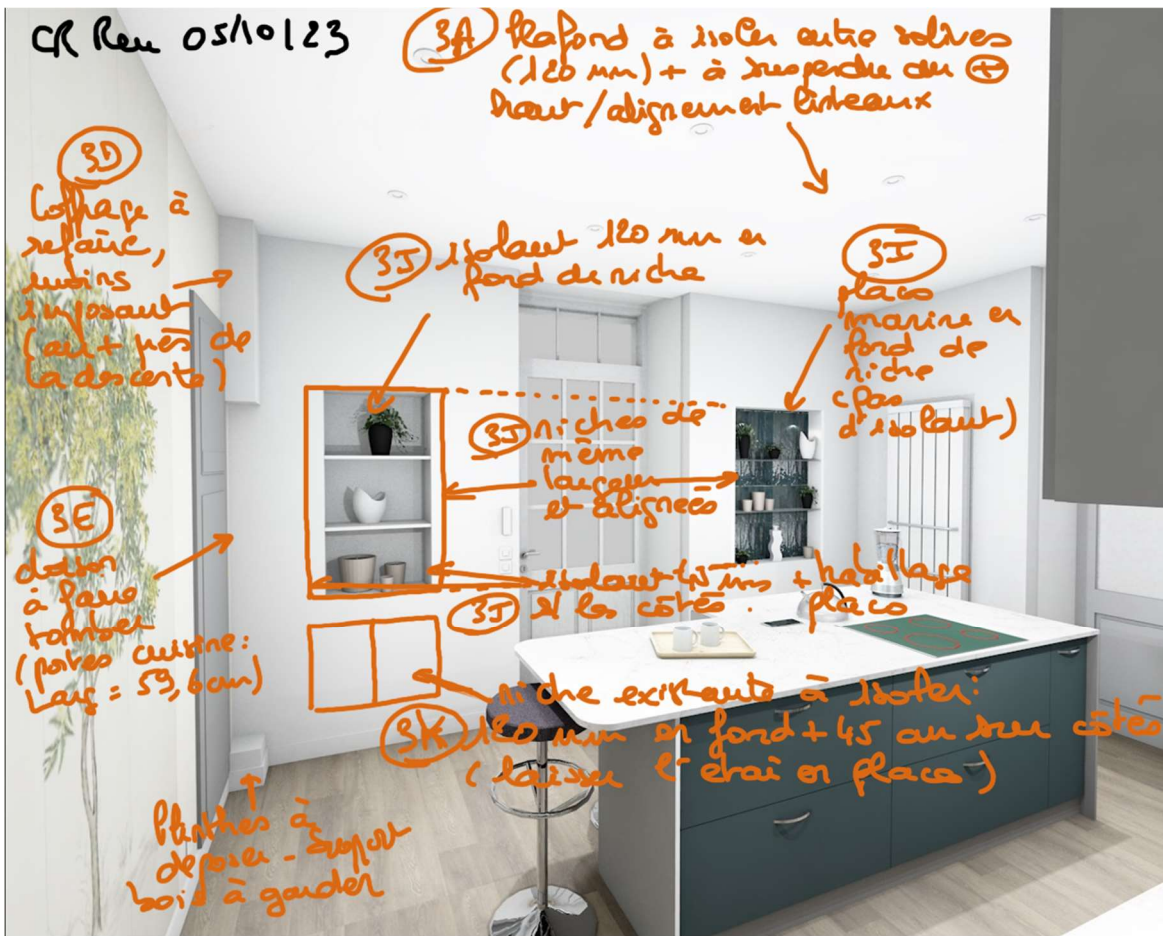 CR Reu 05/10/23
3A Plafond à isoler entre solives
(120 mm) + à suspendre au +
haut/alignement linteaux
3D
Coffrage à
refaire,
moins
imposant
(au + près de
la descente)
3J isolant 120 mm en
fond de niche
3I
placo
marine en
fond de
niche
(pas
d'isolant)
3J niches de
même
largeur
et alignées
3E
cloison
à faire
tomber
(portes cuisine:
Larg = 59,6cm)
isolant 45 mm + habillage
3J st les côtés. placo
niche existante à isoler:
3K 120 mm en fond + 45 au sur côtés
(laisser l'étai en place)
Plinthes à
déposer - support
bois à garder